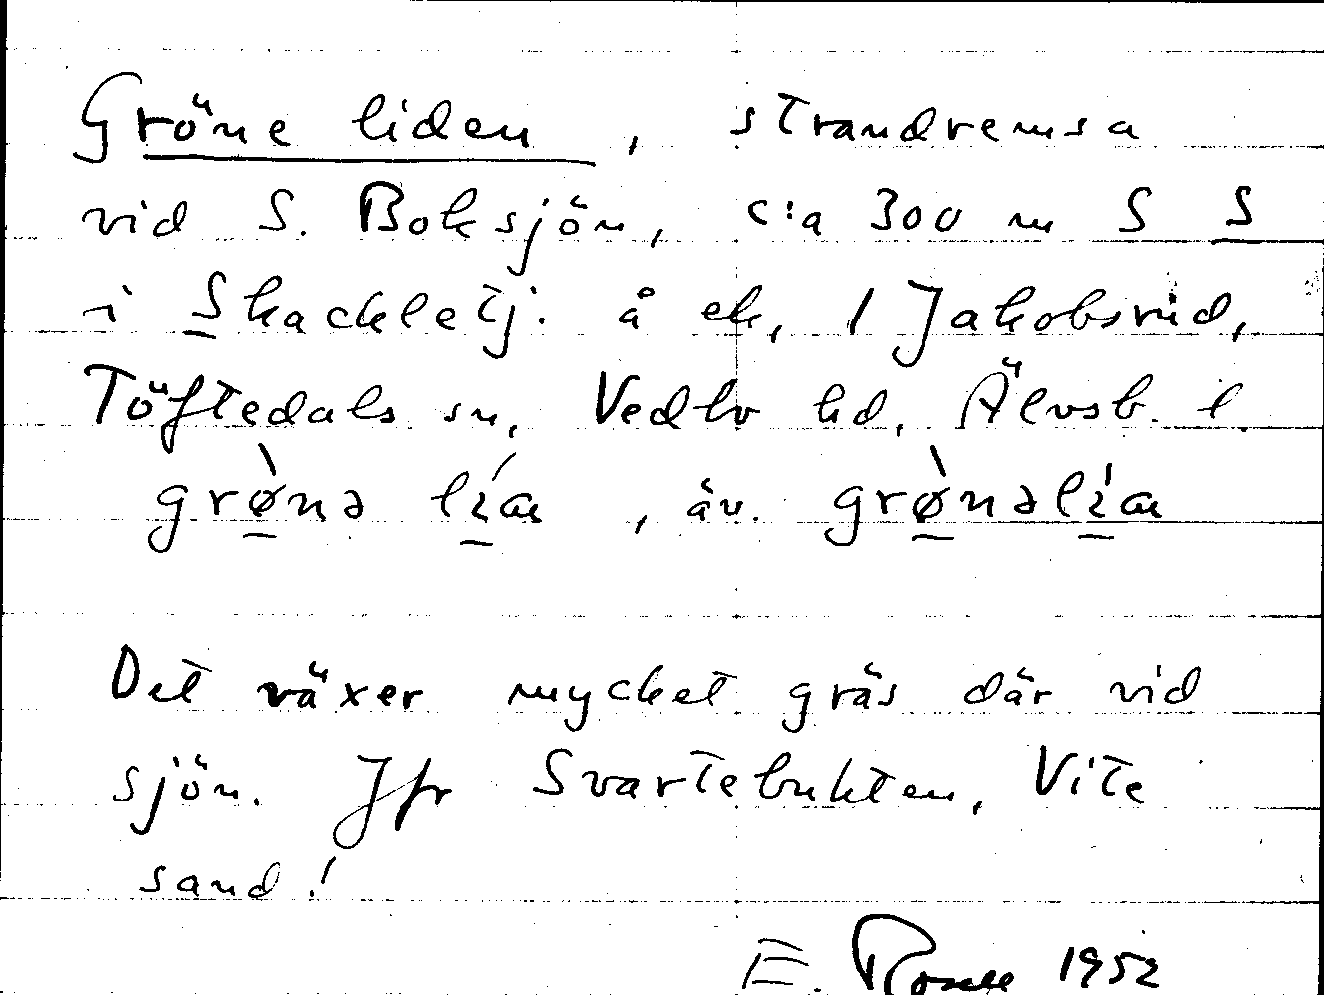 Gröne liden, strandremsa
vid S. Boksjön, c:a 300 m S S
i Skackletj. å ek. 1 Jakobsrud,
Töftedals sn, Vedbo hd, Älvsb. l.
grø̀nə lía, äv. grø̀nəlía
Det växer mycket gräs där vid
sjön. Jfr Svartebukten, Vite
sand!
E. 1952